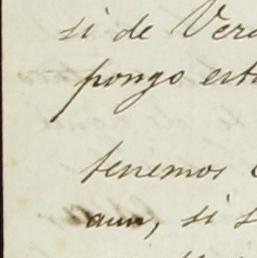 si de Vera
pongo esta
tenemos
aun, si s